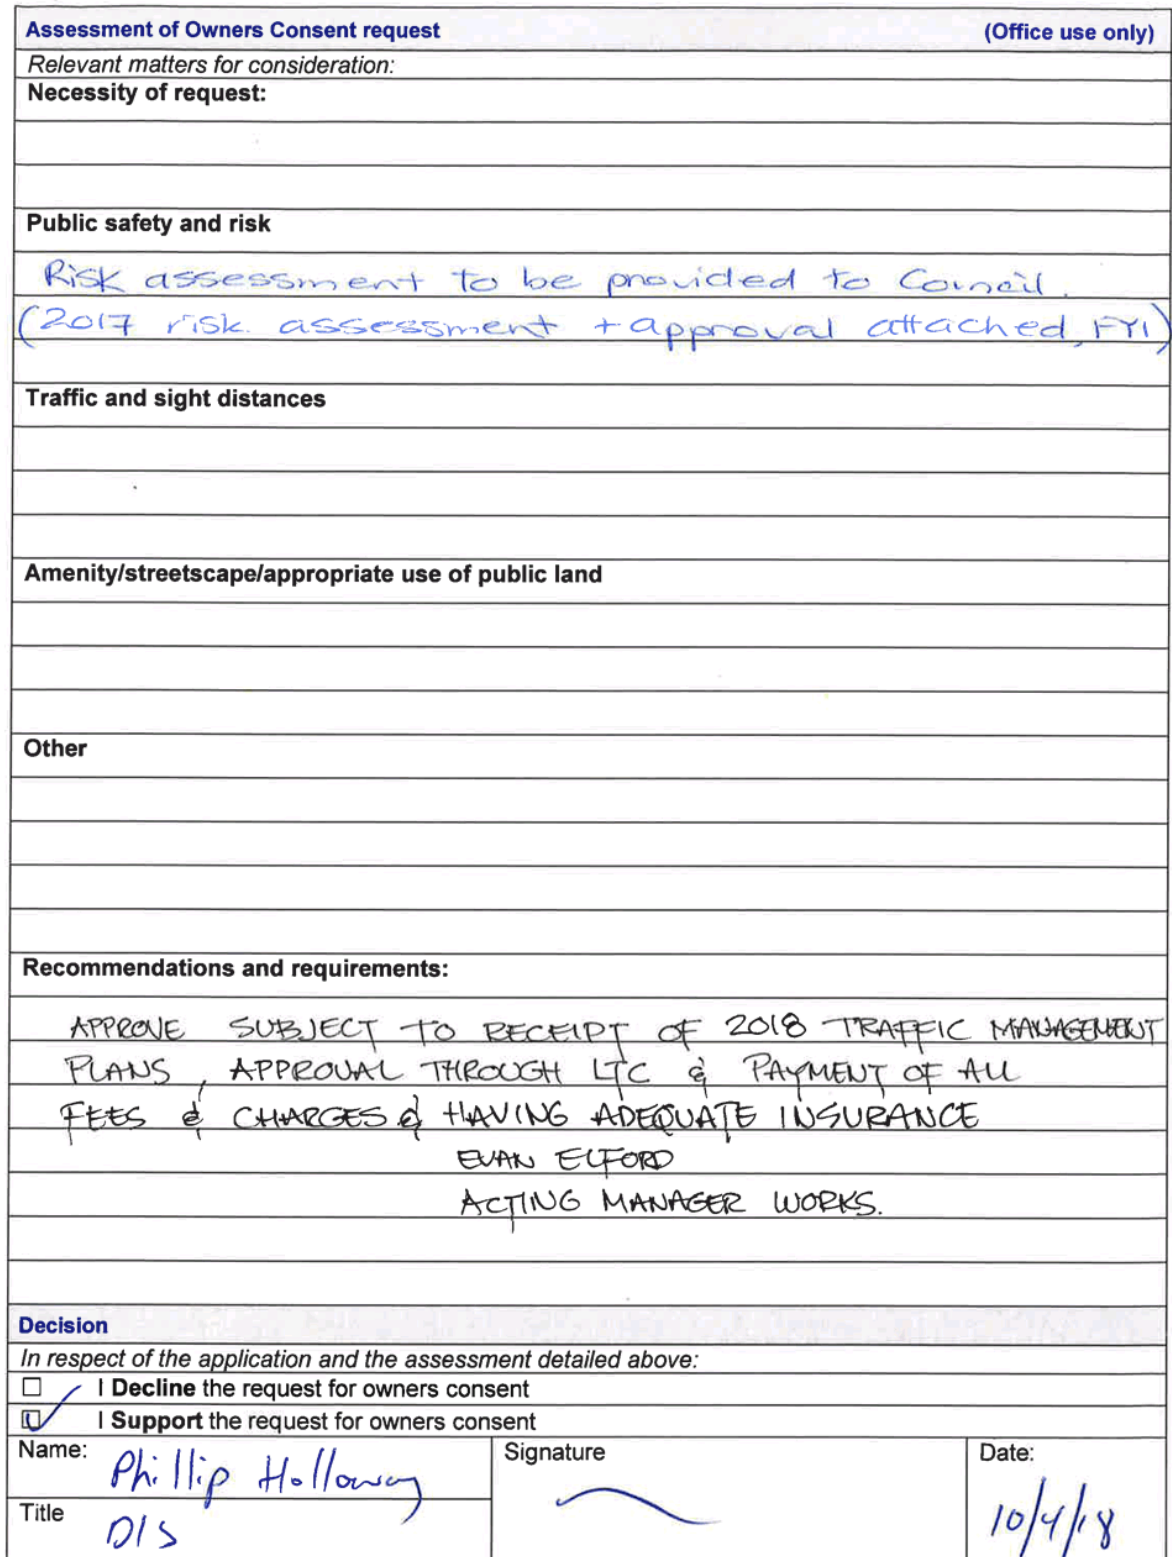 Assessment of Owners Consent request (Office use only)
Relevant matters for consideration:
Necessity of request:
Public safety and risk
Risk assessment to be provided to Council.
(2017 risk assessment + approval attached, FYI)
Traffic and sight distances
Amenity/streetscape/appropriate use of public land
Other
Recommendations and requirements:
APPROVE SUBJECT TO RECEIPT OF 2018 TRAFFIC MANAGEMENT
PLANS, APPROVAL THROUGH LTC & PAYMENT OF ALL
FEES & CHARGES & HAVING ADEQUATE INSURANCE
EVAN ELFORD
ACTING MANAGER WORKS.
Decision
In respect of the application and the assessment detailed above:
I Decline the request for owners consent
I Support the request for owners consent
Name: Phillip Holloway
Signature
Date:
Title DIS
10/4/18